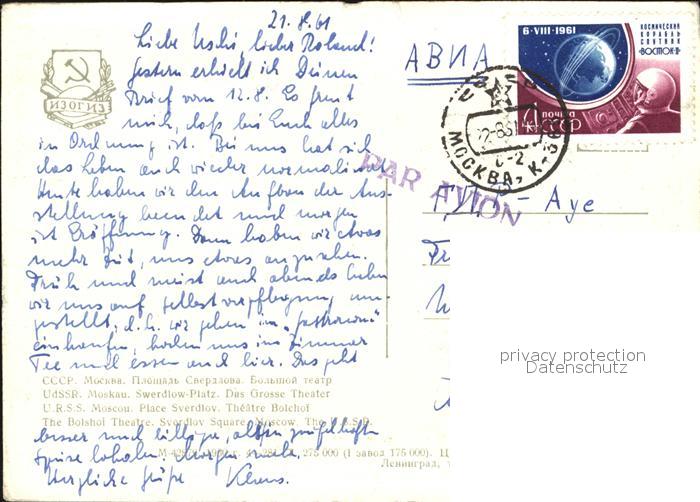 21.8.61
Liebe Uschi, lieber Roland!
Gestern erhielt ich Deinen
Brief vom 12.8. Es freut
mich, daß bei Euch alles
in Ordnung ist. Bei uns hat sich
das Leben auch wieder normalisiert.
Heute haben wir den Aufbau der Aus-
stellung beendet und morgen
ist Eröffnung. Dann haben wir etwas
mehr Zeit, uns etwas anzusehen.
Früh und meist auch abends haben
wir uns auf Selbstverpflegung um-
gestellt, d.h. wir gehen im „Gastronom"
einkaufen, kochen uns im Zimmer
Tee und essen auch hier. Das geht
СССР. Москва. Площадь Свердлова. Большой театр
UdSSR. Moskau. Swerdlow-Platz. Das Grosse Theater
U.R.S.S. Moscou. Place Sverdlov. Théâtre Bolchoï
The Bolshoi Theatre. Sverdlov Square. Moscow. The U.S.S.R.
besser und billiger, als in
Speiselokalen. Morgen mehr.
Herzliche Grüße Klaus.
275 000 (1 завод 175 000).
Ленинград,
ИЗОГИЗ
АВИА
6·VIII·1961
КОСМИЧЕСКИЙ
КОРАБЛЬ
СПУТНИК
«ВОСТОК-II»
4К ПОЧТА
СССР
МОСКВА, К-
PAR AVION
ГДР - Aue
privacy protection
Datenschutz